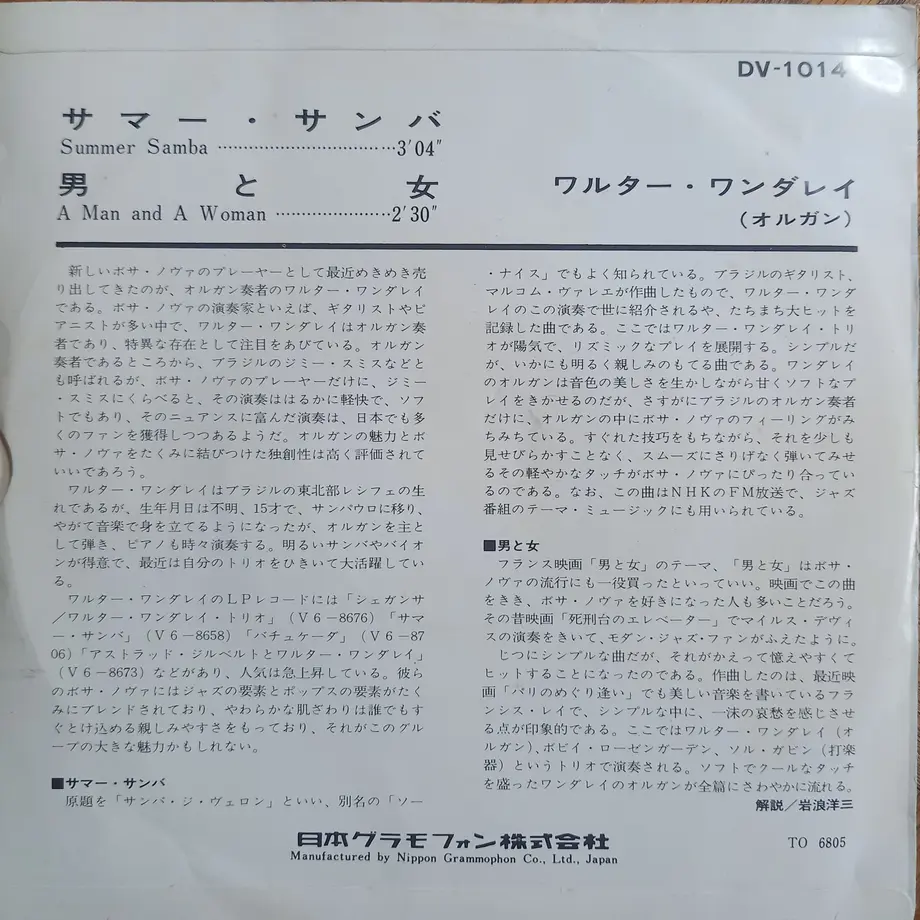 DV-1014
サマー・サンバ
Summer Samba ································3′04″
男と女
A Man and A Woman ·····················2′30″
ワルター・ワンダレイ
(オルガン)
新しいボサ・ノヴァのプレーヤーとして最近めきめき売
り出してきたのが、オルガン奏者のワルター・ワンダレイ
である。ボサ・ノヴァの演奏家といえば、ギタリストやピ
アニストが多い中で、ワルター・ワンダレイはオルガン奏
者であり、特異な存在として注目をあびている。オルガン
奏者であるところから、ブラジルのジミー・スミスなどと
も呼ばれるが、ボサ・ノヴァのプレーヤーだけに、ジミー
・スミスにくらべると、その演奏ははるかに軽快で、ソフ
トでもあり、そのニュアンスに富んだ演奏は、日本でも多
くのファンを獲得しつつあるようだ。オルガンの魅力とボ
サ・ノヴァをたくみに結びつけた独創性は高く評価されて
いいであろう。
ワルター・ワンダレイはブラジルの東北部レシフェの生
れであるが、生年月日は不明、15才で、サンパウロに移り、
やがて音楽で身を立てるようになったが、オルガンを主と
して弾き、ピアノも時々演奏する。明るいサンバやバイオ
ンが得意で、最近は自分のトリオをひきいて大活躍してい
る。
ワルター・ワンダレイのLPレコードには「シェガンサ
/ワルター・ワンダレイ・トリオ」(V6-8676)「サマ
ー・サンバ」(V6-8658)「バチュケーダ」(V6-87
06)「アストラッド・ジルベルトとワルター・ワンダレイ」
(V6-8673)などがあり、人気は急上昇している。彼ら
のボサ・ノヴァにはジャズの要素とポップスの要素がたく
みにブレンドされており、やわらかな肌ざわりは誰でもす
ぐとけ込める親しみやすさをもっており、それがこのグル
ープの大きな魅力かもしれない。
■サマー・サンバ
原題を「サンバ・ジ・ヴェロン」といい、別名の「ソー
・ナイス」でもよく知られている。ブラジルのギタリスト、
マルコム・ヴァレエが作曲したもので、ワルター・ワンダ
レイのこの演奏で世に紹介されるや、たちまち大ヒットを
記録した曲である。ここではワルター・ワンダレイ・トリ
オが陽気で、リズミックなプレイを展開する。シンプルだ
が、いかにも明るく親しみのもてる曲である。ワンダレイ
のオルガンは音色の美しさを生かしながら甘くソフトなプ
レイをきかせるのだが、さすがにブラジルのオルガン奏者
だけに、オルガンの中にボサ・ノヴァのフィーリングがみ
ちみちている。すぐれた技巧をもちながら、それを少しも
見せびらかすことなく、スムーズにさりげなく弾いてみせ
るその軽やかなタッチがボサ・ノヴァにぴったり合ってい
るのである。なお、この曲はNHKのFM放送で、ジャズ
番組のテーマ・ミュージックにも用いられている。
■男と女
フランス映画「男と女」のテーマ、「男と女」はボサ・
ノヴァの流行にも一役買ったといっていい。映画でこの曲
をきき、ボサ・ノヴァを好きになった人も多いことだろう。
その昔映画「死刑台のエレベーター」でマイルス・デヴィ
スの演奏をきいて、モダン・ジャズ・ファンがふえたように。
じつにシンプルな曲だが、それがかえって憶えやすくて
ヒットすることになったのである。作曲したのは、最近映
画「パリのめぐり逢い」でも美しい音楽を書いているフラ
ンシス・レイで、シンプルな中に、一沫の哀愁を感じさせ
る点が印象的である。ここではワルター・ワンダレイ(オ
ルガン)、ボビイ・ローゼンガーデン、ソル・ガビン(打楽
器)というトリオで演奏される。ソフトでクールなタッチ
を盛ったワンダレイのオルガンが全篇にさわやかに流れる。
解説/岩浪洋三
日本グラモフォン株式会社
Manufactured by Nippon Grammophon Co., Ltd., Japan
TO 6805